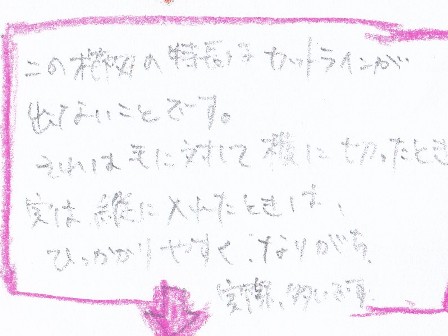 この機械の特長はカットラインが
出ないことです。
それは毛に対して横に切ったとき
実は縦に入れたときは、
ひっかかりやすくなりがち
実際、多いです。